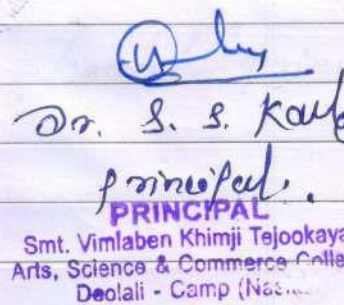 Dr. S. S. Kau
principal.
PRINCIPAL
Smt. Vimlaben Khimji Tejookaya
Arts, Science & Commerce Colle
Deolali - Camp (Nas